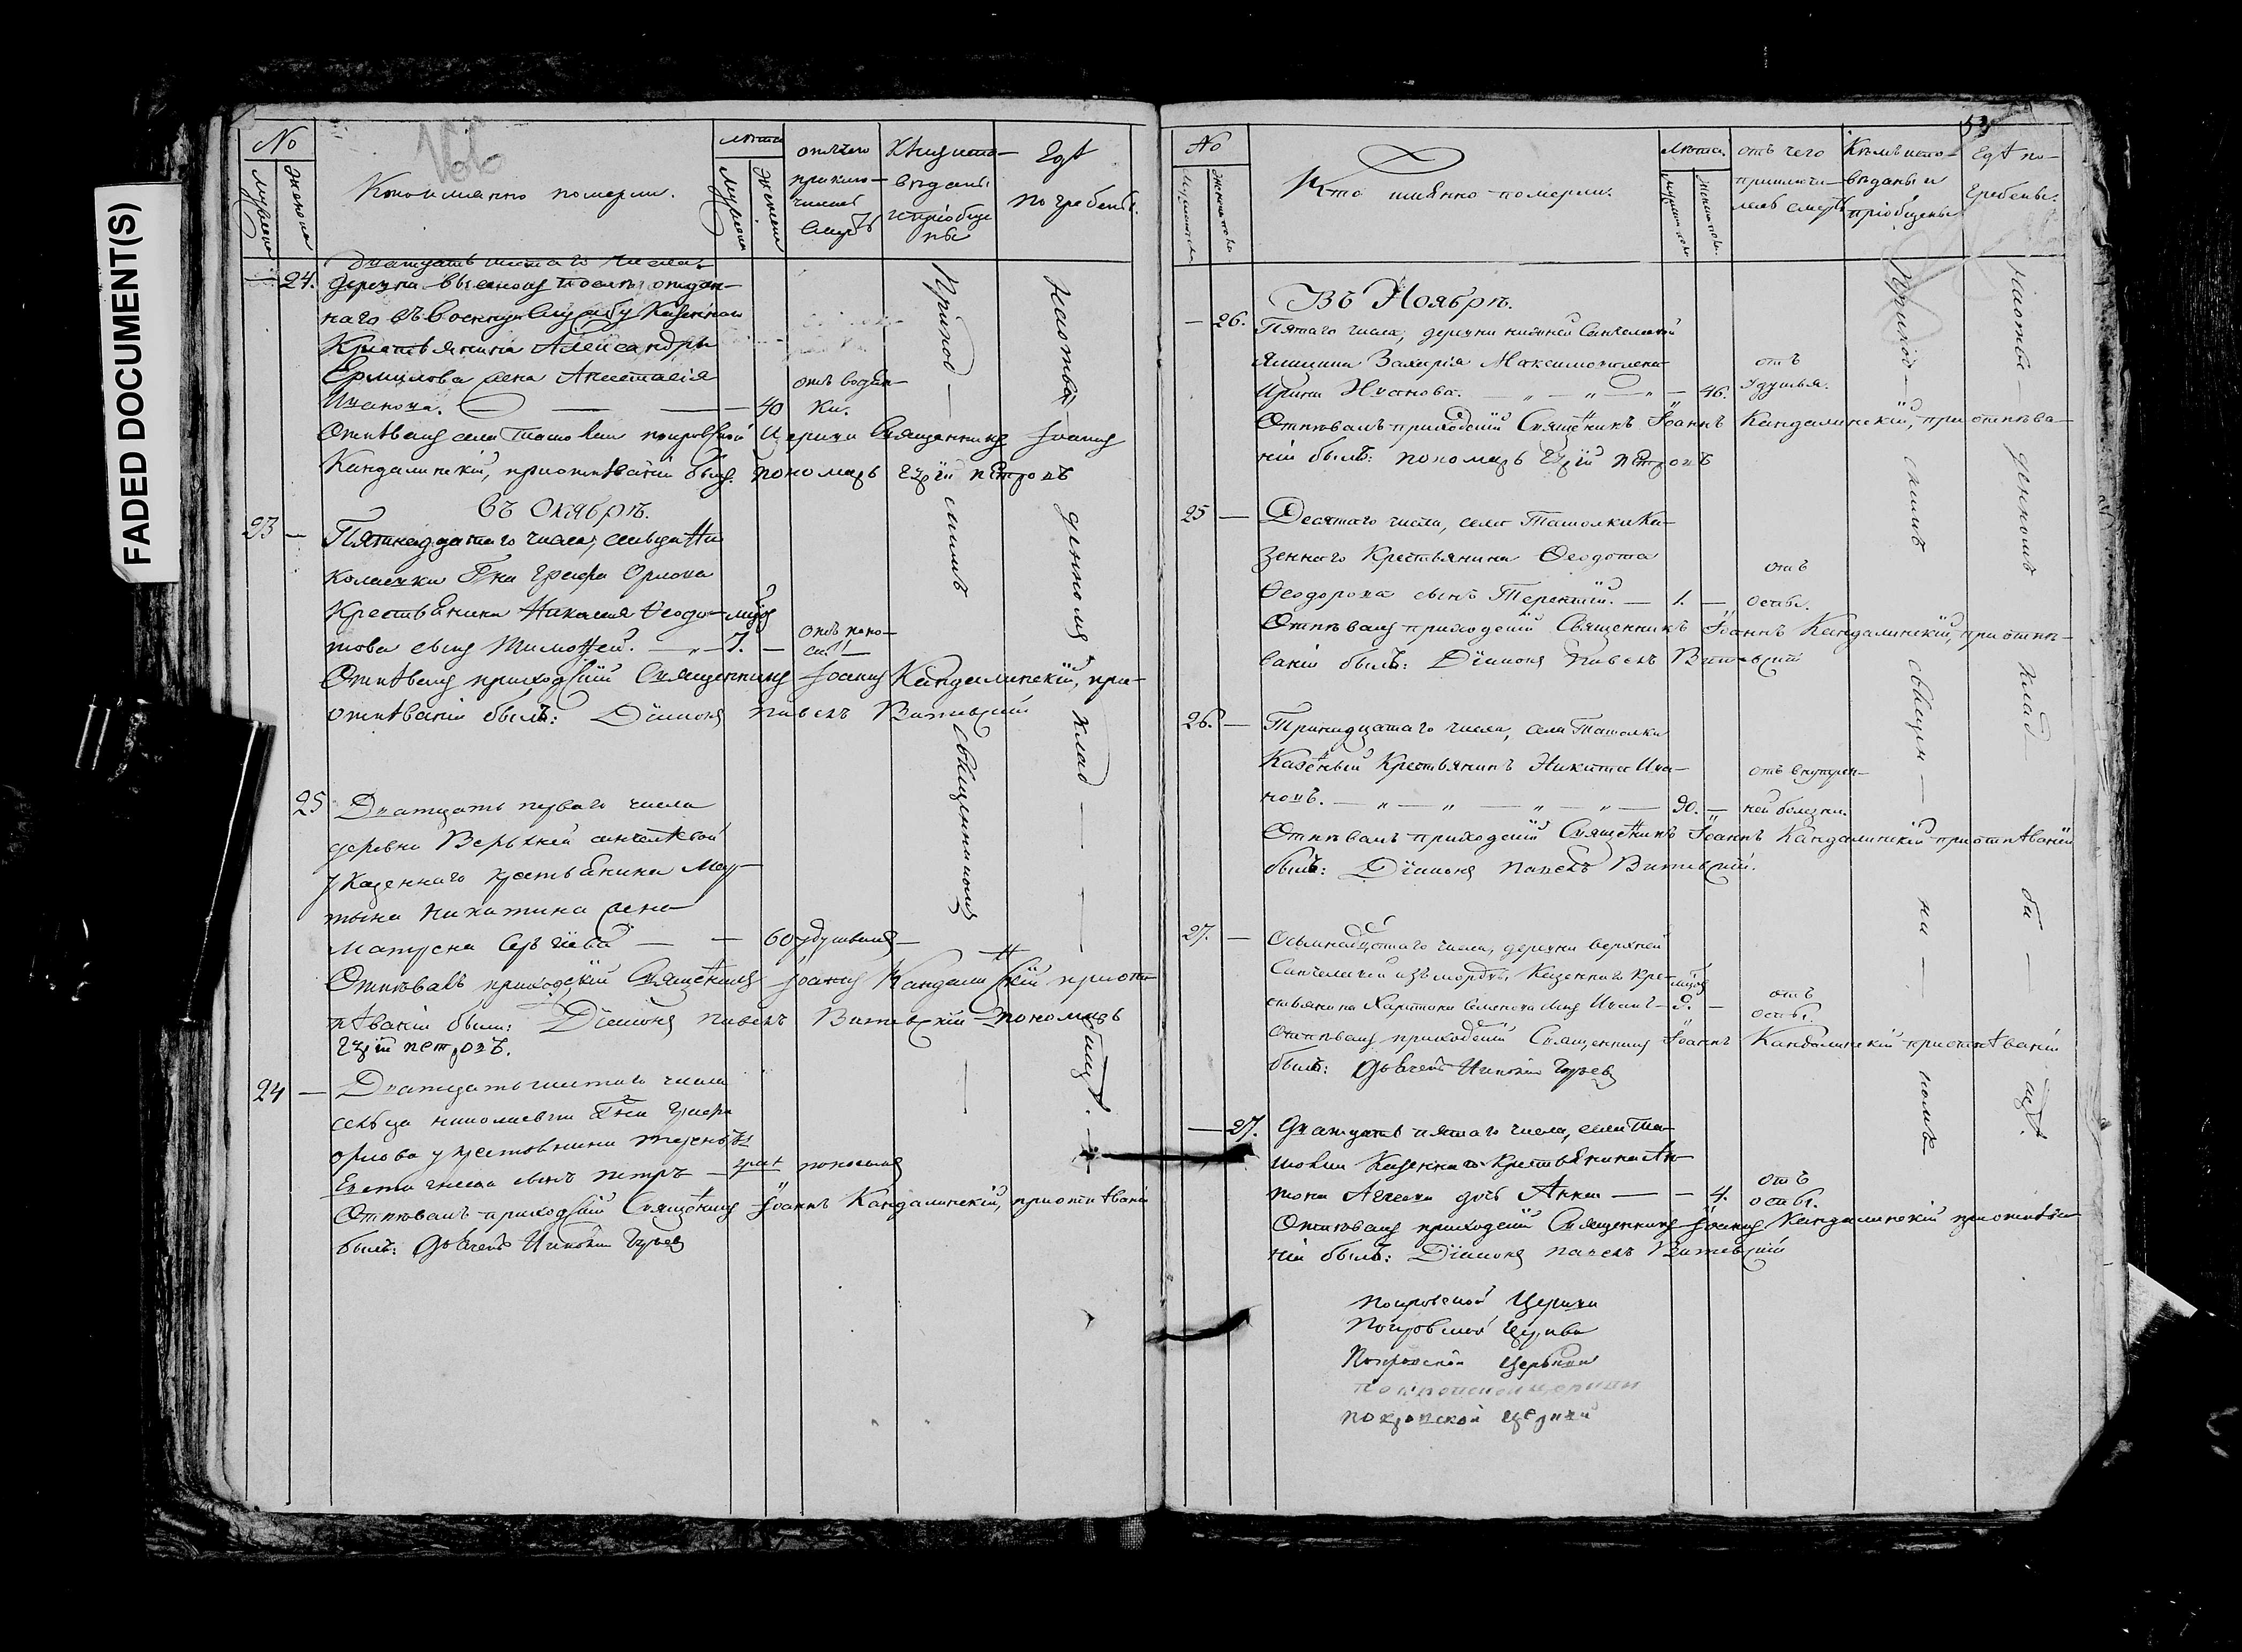 FADED DOCUMENT(S)
166
№
Мужеска
Женска
Кто имянно померли.
лѣта
Мужеска
Женска
отъ чего приклю-
чилась
смерть
Кѣмъ испо-
вѣданы
и пріобще
ны
Гдѣ
погребены.
24.
Дватцать шестаго числа
наго въ Военную службу Казеннаго
Крестьянина Александры
Ермилова жена Анастасія
Иванова. — 40
отъ водян-
ки.
Отпѣвалъ села Ташолки покровской Церкви Священникъ Іоаннъ
Кандалинскій, приотпѣваніи былъ пономарь Петровъ
въ Октябрѣ.
23 —
Пятнадцатаго числа, сельца Ни
колаевки Гна Графа Орлова
Крестьянина Николая Ѳеодо-
това сынъ Тимоѳей. —
отъ поно-
са
Отпѣвалъ приходскій Священникъ Іоаннъ Кандалинскій, при
отпѣваніи былъ: Діаконъ павелъ Витевскій
25
Дватцать перваго числа
деревни Верьхней
Казеннаго крестьянина Мар-
тына Никитина жена
Матрена — — 60 удушья
Отпѣвалъ приходскій Священникъ Іоаннъ Кандалинскій приотп
ѣваніи были: Діаконъ павелъ Витевскій пономарь
петровъ.
24 —
Дватцать шестаго числа
сельца николаевки Гна Графа
орлова крестьянина
сынъ петръ — поносомъ
Отпѣвалъ приходскій Священникъ Іоаннъ Кандалинскій, приотпѣваніи
былъ: Дьячекъ
Приход — скимъ священникомъ —
На отве денномъ клад — — — бищѣ.
№
Мужеска пола
Женска пола
Кто имянно померли.
Лѣта.
отъ чего
приключи-
лась смерть
Кѣмъ испо-
вѣданы и
пріобщены
Гдѣ по-
гребены.
Въ Ноябрѣ.
— 26.
Пятаго числа, деревни нижней
Ямщика Захарія Максимова жена
Ирина Иванова. — „ — „ — „ — 46.
отъ
Удушья.
Отпѣвалъ приходскій Священникъ Іоаннъ Кандалинскій, приотпѣва-
ніи былъ: пономарь Петровъ
25 —
Десятаго числа, села Ташолки Ка-
зеннаго Крестьянина Ѳеодота
Ѳеодорова сынъ Терентій. — 1. —
отъ
оспы.
Отпѣвалъ приходскій Священникъ Іоаннъ Кандалинскій, приотпѣ-
ваніи былъ: Діаконъ Павелъ Витевскій
26. —
Тринадцатаго числа, села Ташолки
Казенный Крестьянинъ Никита Ива-
новъ. — „ — „ — „ — „ — 90. —
отъ внутрен-
ней болезни.
Отпѣвалъ приходскій Священникъ Іоаннъ Кандалинскій приотпѣваніи
былъ: Діаконъ Павелъ Витевскій.
27. —
Осьмнадцатаго числа, деревни верхней
изъ мордвы Казеннаго Кре-
стьянина Харитона Семенова сынъ —
отъ
оспы.
Отпѣвалъ приходскій Священникъ Іоаннъ Кандалинскій приотпѣваніи
былъ: Дьячекъ
— 27.
Дватцать пятаго числа, села Та-
шолки Казеннаго Крестьянина Ан-
тона дочь Анна — — 4.
отъ
оспы.
Отпѣвалъ приходскій Священникъ Іоаннъ Кандалинскій приотпѣва-
ніи былъ: Діаконъ павелъ Витевскій
Покровской Церкви
Покровской Церкви
Покровской Церькви
покровской церкви
покровской церкви
Приход — скимъ — священ — ни — комъ
На отве денномъ клад — би — щѣ.